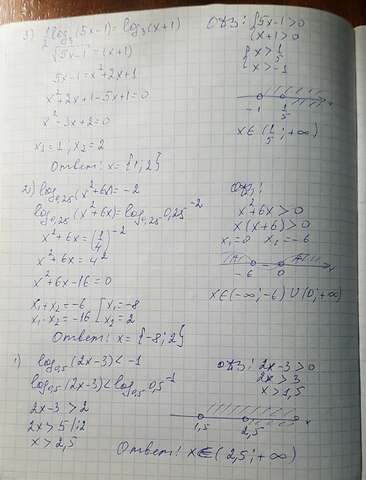 3) 1/2 log₃(5x-1) = log₃(x+1)
√5x-1 = (x+1)
5x-1 = x²+2x+1
x²+2x+1-5x+1=0
x²-3x+2=0
x₁=1, x₂=2
Ответ: x={1;2}
ОДЗ: {5x-1>0
{x+1>0
{x>1/5
{x>-1
-1 1/5 x
x∈(1/5;+∞)
2) log₀,₂₅(x²+6x)=-2
log₀,₂₅(x²+6x)=log₀,₂₅0,25⁻²
x²+6x=(1/4)⁻²
x²+6x=4²
x²+6x-16=0
x₁+x₂=-6 [x₁=-8
x₁·x₂=-16 [x₂=2
Ответ: x={-8;2}
ОДЗ:
x²+6x>0
x(x+6)>0
x₁=0 x₂=-6
-6 0 x
x∈(-∞;-6)∪(0;+∞)
1) log₀,₅(2x-3)<-1
log₀,₅(2x-3)<log₀,₅0,5⁻¹
2x-3>2
2x>5|:2
x>2,5
ОДЗ: 2x-3>0
2x>3
x>1,5
1,5 2,5 x
Ответ: x∈(2,5;+∞)